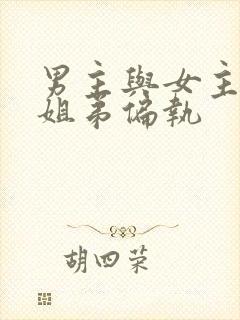 男主與女主
姐弟偏執
胡四荣